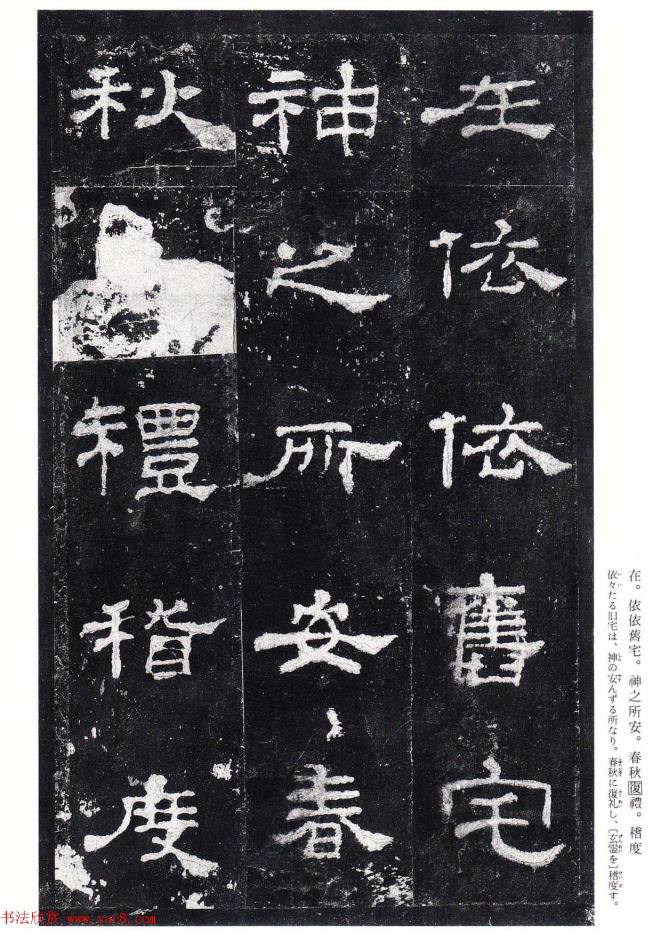 在依依舊宅
神之所安春
秋禮稽度
在。依依舊宅。神之所安。春秋復禮。稽度
依々たる旧宅は、神の安んずる所なり。春秋に復礼し、〔玄霊を〕稽度す。
书法欣赏 www.yac8.com